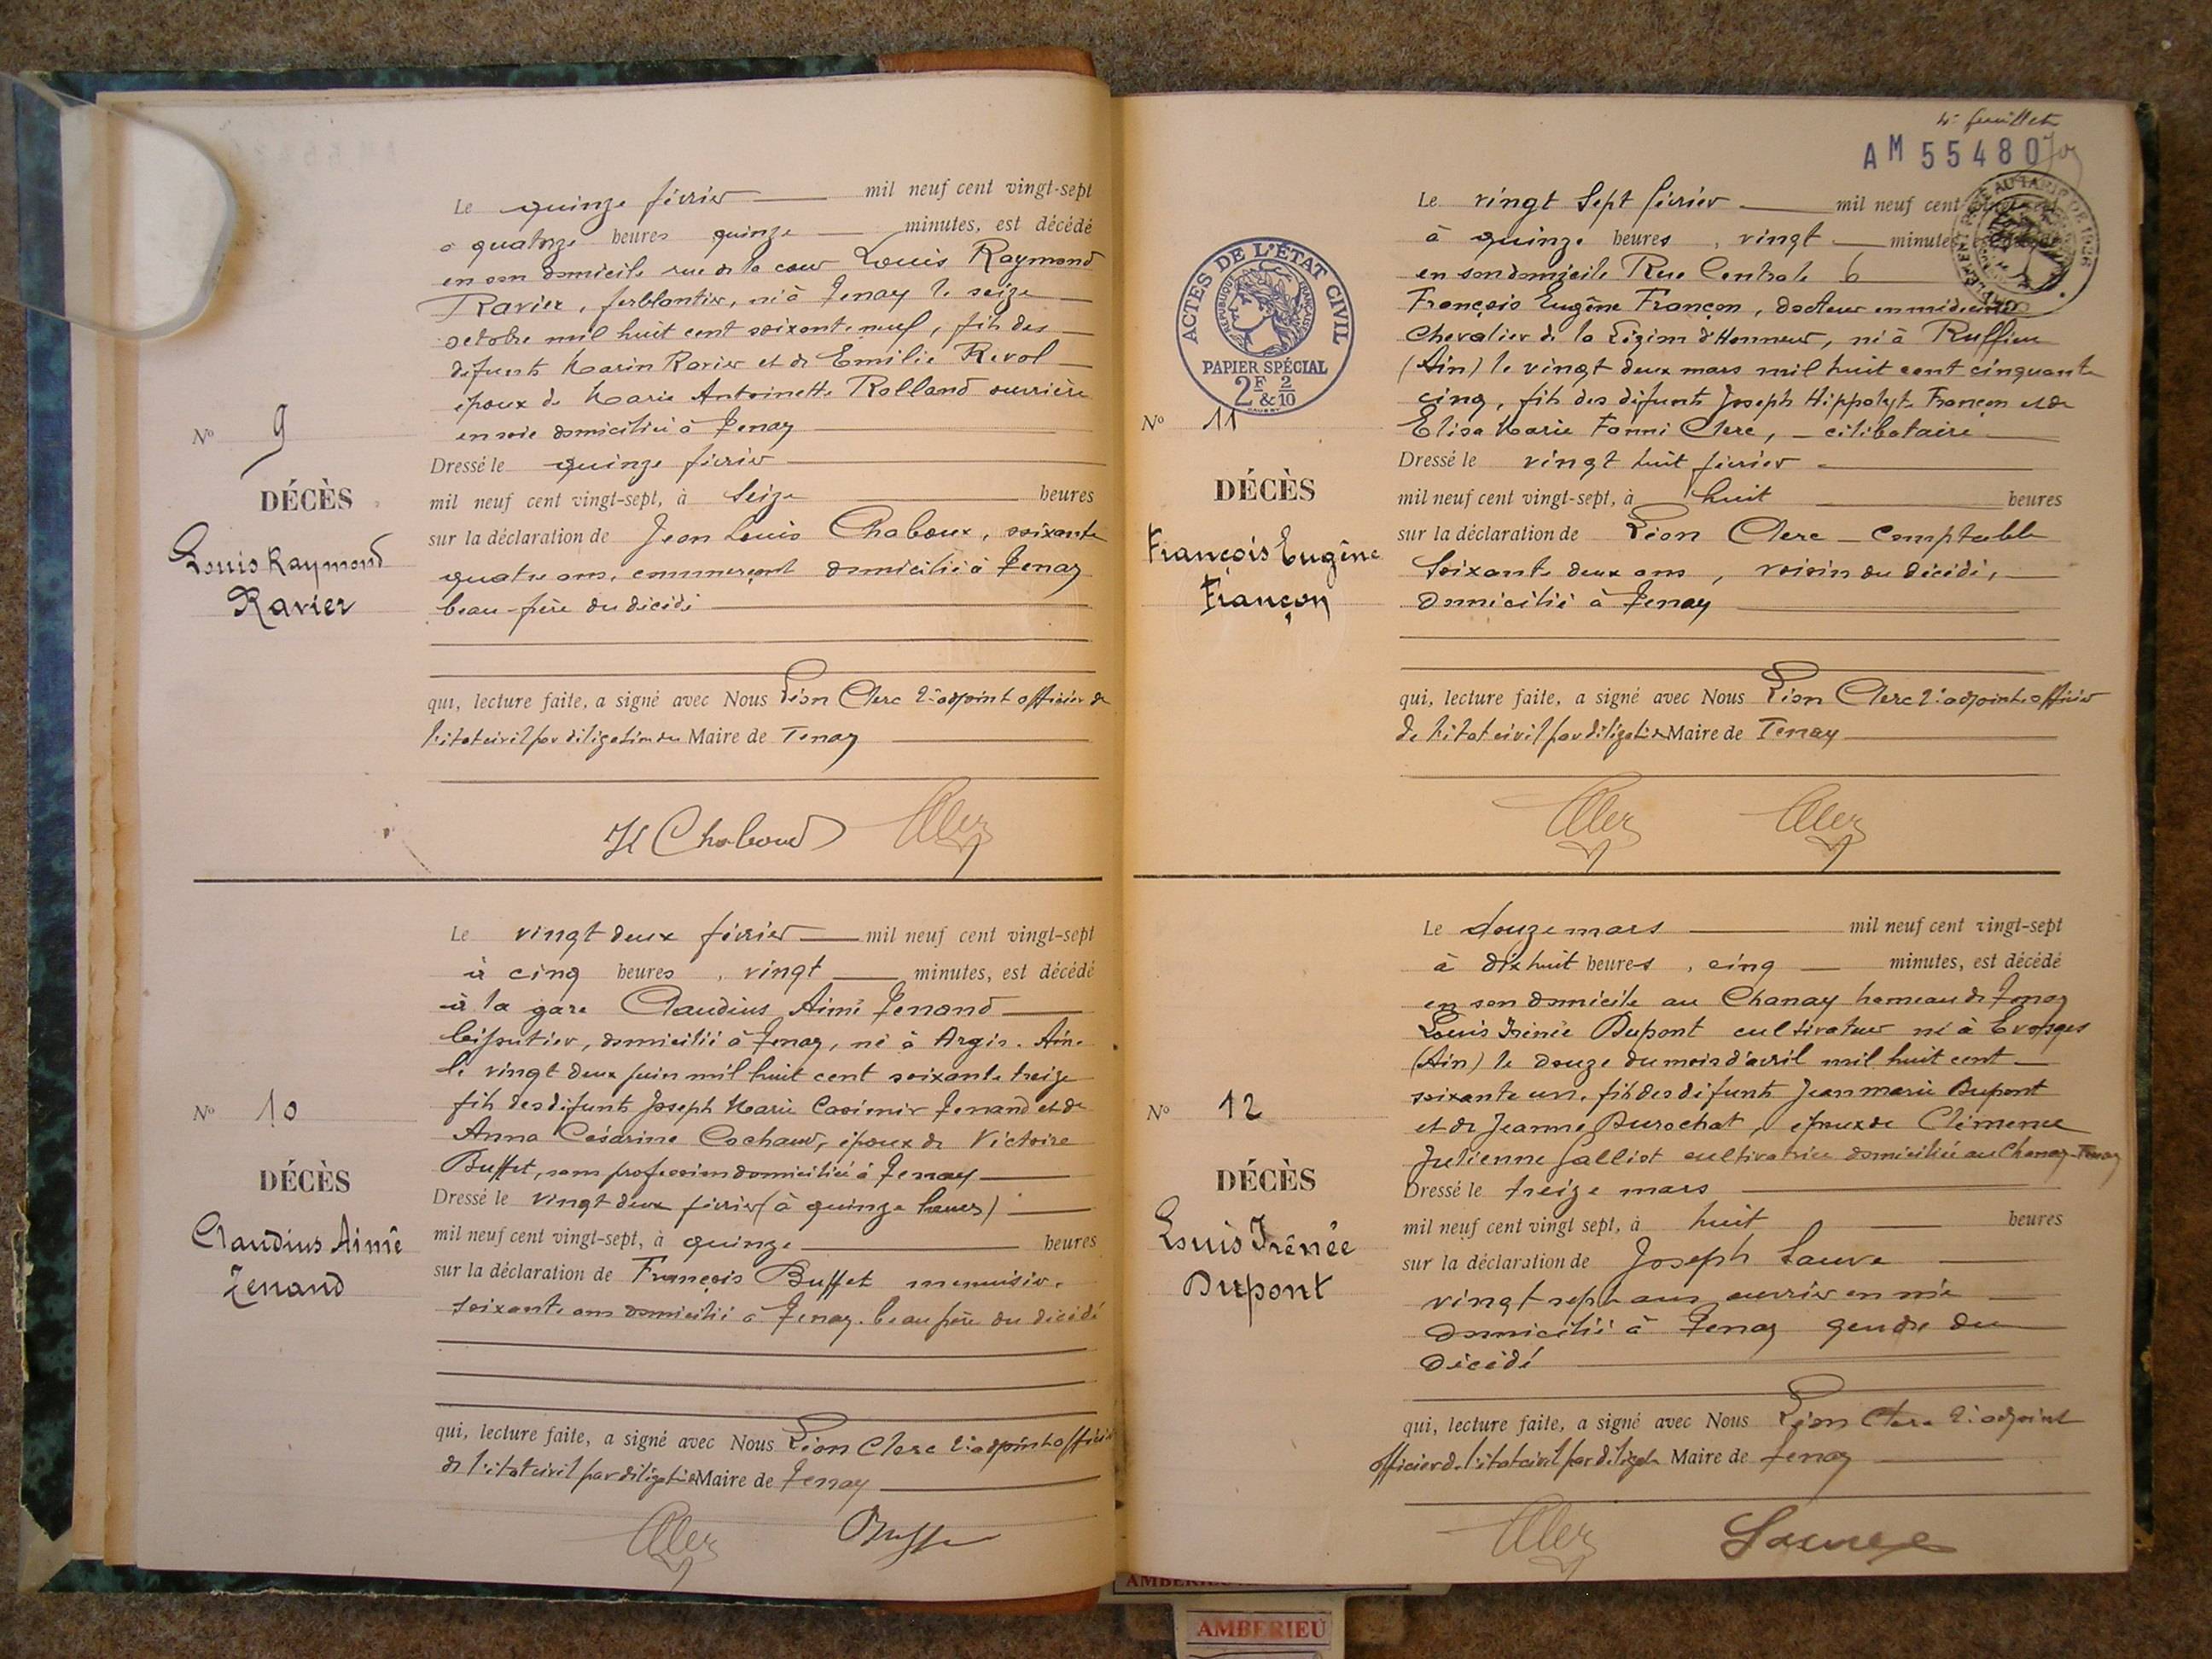 Le quinze février mil neuf cent vingt-sept
à quatorze heures quinze minutes, est décédé
en son domicile rue de la cour Louis Raymond
Ravier, ferblantier, né à Tenay le seize
octobre mil huit cent soixante neuf, fils des
défunts Marin Ravier et de Emilie Revol
époux de Marie Antoinette Rolland ouvrière
en soie domiciliée à Tenay
Nº 9
Dressé le quinze février
DÉCÈS
mil neuf cent vingt-sept, à Seize heures
Louis Raymond
Ravier
sur la déclaration de Jean Louis Chaboux, soixante
quatre ans, commerçant domicilié à Tenay
beau-frère du décédé
qui, lecture faite, a signé avec Nous Léon Clerc 2e adjoint officier de
l'état civil par délégation du Maire de Tenay
Le vingt deux février mil neuf cent vingt-sept
à cinq heures, vingt minutes, est décédé
à la gare Claudius Aimé Zenand
bijoutier, domicilié à Tenay, né à Argis. Ain.
le vingt deux juin mil huit cent soixante treize
fils des défunts Joseph Marie Casimir Zenand et de
Anna Césarine Cochaud, époux de Victoire
Buffet, sans profession domiciliée à Tenay
Nº 10
DÉCÈS
Claudius Aimé
Zenand
Dressé le vingt deux février (à quinze heures)
mil neuf cent vingt-sept, à quinze heures
sur la déclaration de François Buffet menuisier,
soixante ans domicilié à Tenay. beau père du décédé
qui, lecture faite, a signé avec Nous Léon Clerc 2e adjoint officier
de l'état civil par délégation Maire de Tenay
4e feuillet
AM 55480
Le vingt Sept février mil neuf cent
à quinze heures, vingt minutes
en son domicile Rue Centrale 6
François Eugène Françon, docteur en médecine
Chevalier de la Légion d'Honneur, né à Ruffieu
(Ain) le vingt deux mars mil huit cent cinquante
cinq, fils des défunts Joseph Hippolyte Françon et de
Elisa Marie Fanni Clerc, célibataire
ACTES DE L'ÉTAT CIVIL
RÉPUBLIQUE FRANÇAISE
PAPIER SPÉCIAL
2F & 2/10
Nº 11
DÉCÈS
François Eugène
Françon
Dressé le vingt huit février
mil neuf cent vingt-sept, à huit heures
sur la déclaration de Léon Clerc - Comptable
Soixante deux ans, voisin du décédé,
domicilié à Tenay
qui, lecture faite, a signé avec Nous Léon Clerc 2e adjoint officier
de l'état civil par délégation Maire de Tenay
Le douze mars mil neuf cent vingt-sept
à dix huit heures, cinq minutes, est décédé
en son domicile au Chanay hameau de Tenay
Louis Irénée Dupont cultivateur né à Evosges
(Ain) le douze du mois d'avril mil huit cent
soixante un, fils des défunts Jean marie Dupont
et de Jeanne Durochat, époux de Clémence
Julienne Galliot cultivatrice domiciliée au Chanay-Tenay
Nº 12
DÉCÈS
Louis Irénée
Dupont
Dressé le treize mars
mil neuf cent vingt sept, à huit heures
sur la déclaration de Joseph Sauve
vingt sept ans ouvrier en
domicilié à Tenay gendre du
décédé
qui, lecture faite, a signé avec Nous Léon Clerc 2e adjoint
officier de l'état civil par délégation Maire de Tenay
AMBERIEU